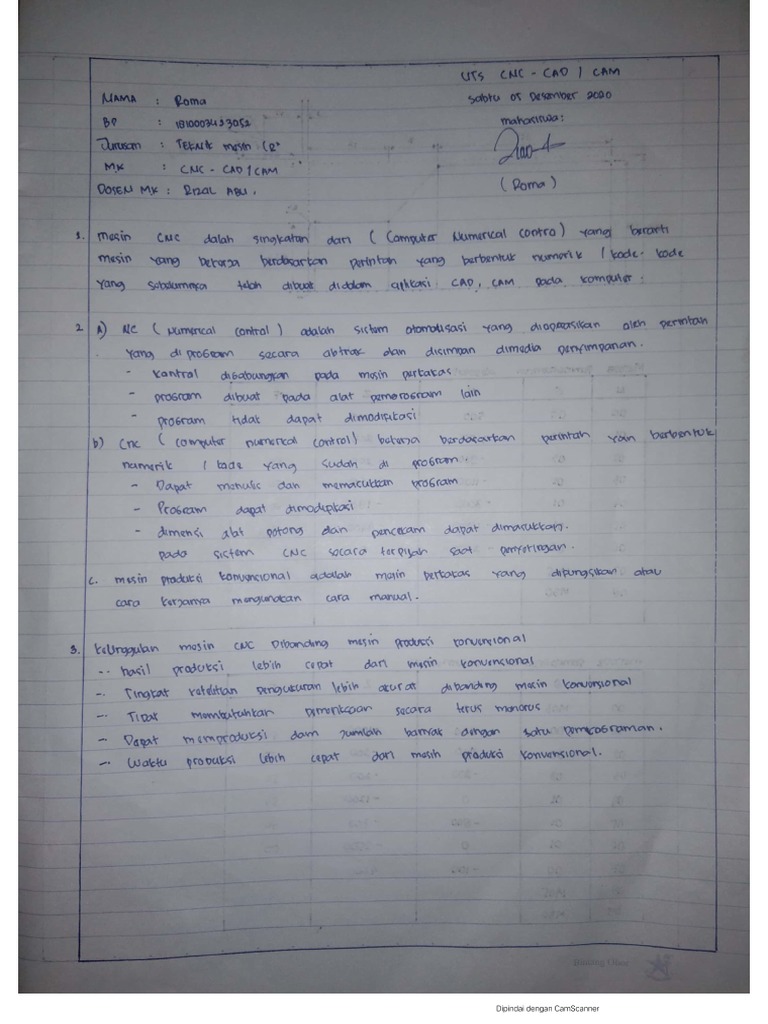 UTS CNC - CAD / CAM
NAMA : Roma
Sabtu 05 Desember 2020
BP : 1810003433052
mahasiswa:
Jurusan : TEKNIK mesin (R)
MK : CNC - CAD / CAM
(Roma)
DOSEN MK : RIZAL ABU.
1. mesin CNC dalah singkatan dari ( Computer Numerical Contro) yang berarti
mesin yang bekerja berdasarkan perintah yang berbentuk numerik / kode-kode
yang sebelumnya telah dibuat didalam aplikasi CAD, CAM pada komputer.
2. A) NC ( Numerical Control ) adalah sistem otomatisasi yang dioperasikan oleh perintah
yang di program secara abtrak dan disimpan dimedia penyimpanan.
- kontrol digabungkan pada mesin perkakas
- program dibuat pada alat pemorogram lain
- program tidak dapat dimodifikasi
b) Cnc ( computer numerical control) bekerja berdasarkan perintah yain berbentuk
numerik / kode yang sudah di program.
- Dapat menulis dan memasukkan program
- Program dapat dimodifikasi
- dimensi alat potong dan pencekam dapat dimasukkan.
pada sistem CNC secara terpisah saat penyetingan.
c. mesin produksi konvensional adalah mesin perkakas yang difungsikan atau
cara kerjanya mengunakan cara manual.
3. keunggulan mesin CNC Dibanding mesin produksi konvensional
- hasil produksi lebih cepat dari mesin konvensional
- Tingkat ketelitian pengukuran lebih akurat dibanding mesin konvensional
- Tidak membutuhkan pemeriksaan secara terus menerus
- Dapat memproduksi dam jumlah banyak dengan satu pemrograman.
- Waktu produksi lebih cepat dari mesin produksi konvensional.
Bintang Obor
Dipindai dengan CamScanner